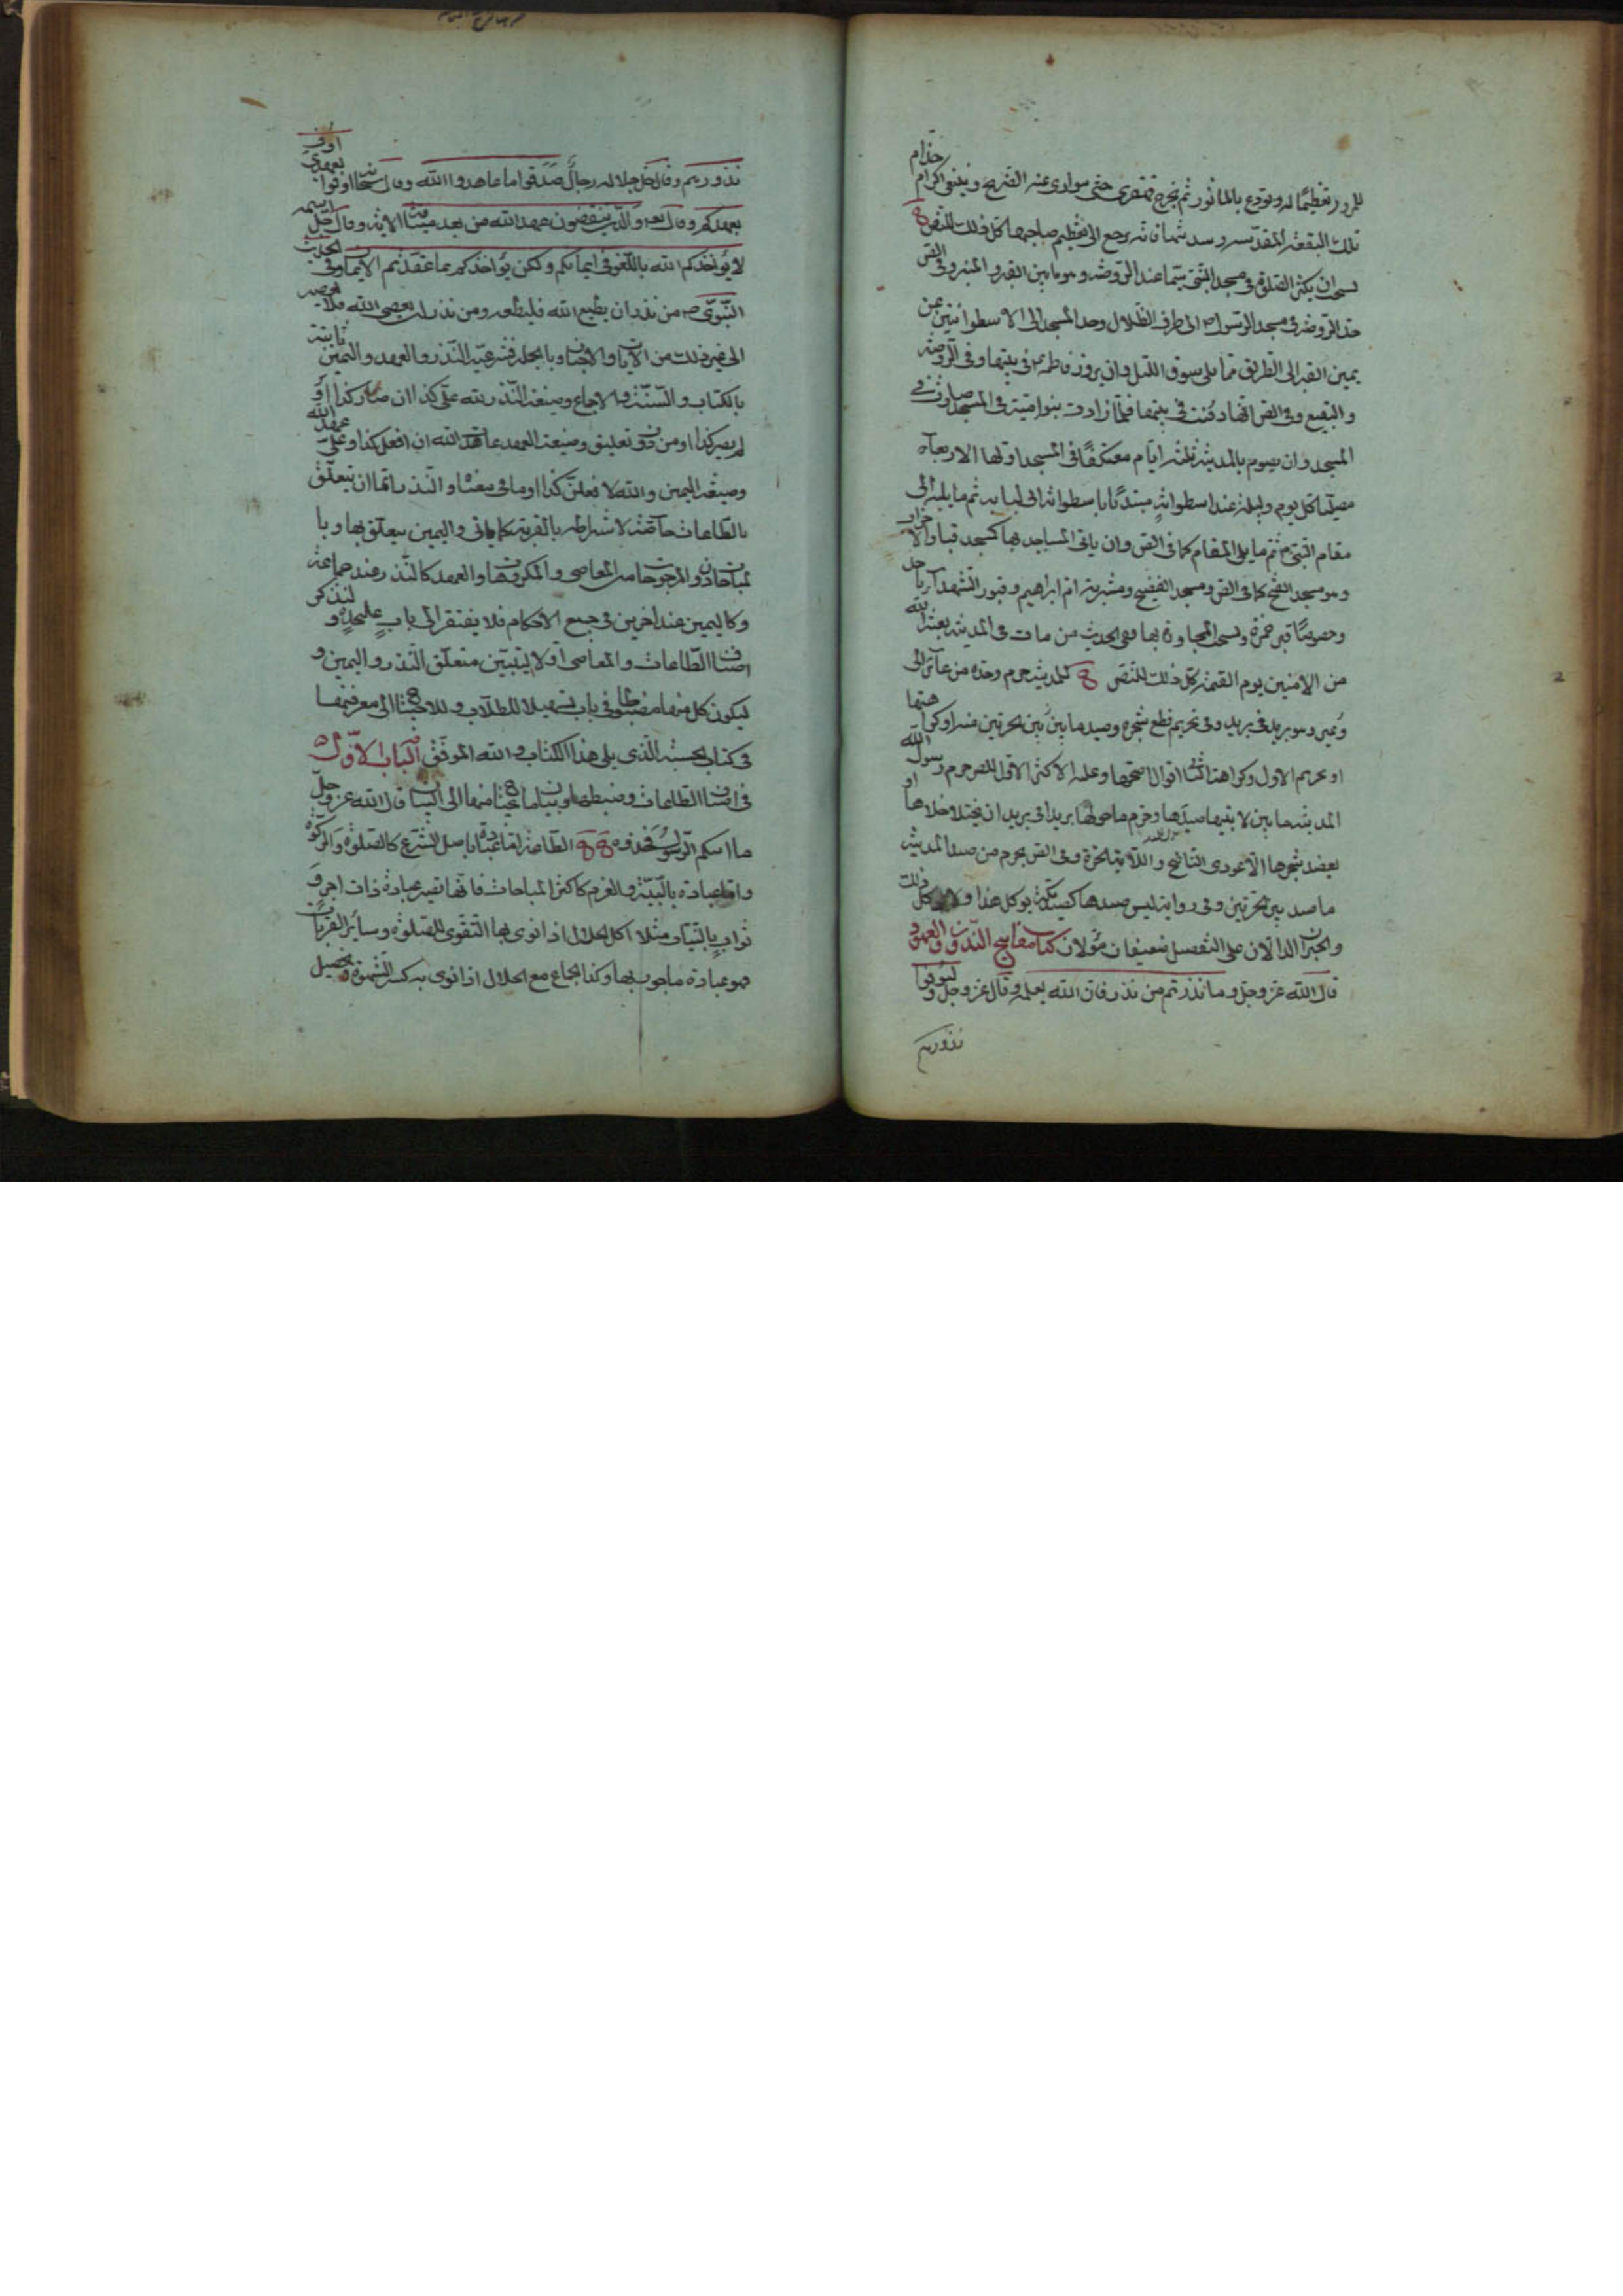 للمزور تعظيما له وتودع بالمأثور ثم يخرج قهقرى حتى يتوارى عنه الضريح وينبغي اكرام خدام
تلك البقعة المقدسة وسدنتها فانه يرجع الى تعظيم صاحبها كل ذلك للنص
يستحب ان يكثر الصلوة في مسجد النبي سيما عند الروضة وهو ما بين القبر والمنبر وفي النص
حد الروضة في مسجد الرسول ص الى طرف الظلال وحد المسجد الى الاسطوانتين عن
يمين القبر الى الطريق مما يلي سوق الليل وان يزور فاطمة ع في بيتها وفي الروضة
والبقيع وفي النص انها دفنت في بيتها فلما زادت بنو امية في المسجد صارت في
المسجد وان يصوم بالمدينة ثلثة ايام معتكفا في المسجد اولها الاربعاء
مصليا كل يوم وليلة عند اسطوانة مبتدئا باسطوانة ابي لبابة ثم ما يليها الى
مقام النبي ص ثم ما يلي المقام كما في النص وان يأتي المساجد بها كمسجد قبا والاحزاب
وهو مسجد الفتح كما في النص ومسجد الفضيخ ومشربة ام ابراهيم وقبور الشهداء باحد
وخصوصا قبر حمزة ويستحب المجاورة بها ففي الحديث من مات في المدينة بعثه الله
من الامنين يوم القيمة كل ذلك للنص للمدينة حرم وحده من عائر الى
وعير وهو بريد في بريد وفي تحريم قطع شجره وصيد ما بين الحرتين منه او كراهتهما
او تحريم الاول وكراهة الثاني اقوال اصحها وعليه الاكثر الاول للنص حرم رسول الله
المدينة ما بين لابتيها صيدها وحرم ما حولها بريدا في بريد ان يختلا خلاها او
يعضد شجرها الا عودي الناضح واللابة الحرة وفي النص يحرم من صيد المدينة
ما صيد بين الحرتين وفي رواية ليس صيدها كصيد مكة يؤكل هذا ولا يؤكل ذلك
والخبران الدالان على التفصيل ضعيفان مؤولان كتاب مفاتيح النذور والعهود
قال الله عز وجل وما نذرتم من نذر فان الله يعلمه وقال عز وجل وليوفوا
نذورهم
نذورهم وقال جل جلاله رجال صدقوا ما عاهدوا الله وقال سبحانه اوفوا بعهدي اوف
بعهدكم وقال تعالى والذين ينقضون عهد الله من بعد ميثاقه الاية وقال جل اسمه
لا يؤاخذكم الله باللغو في ايمانكم ولكن يؤاخذكم بما عقدتم الايمان وفي الحديث
النبوي ص من نذر ان يطيع الله فليطعه ومن نذر ان يعصي الله فلا يعصه
الى غير ذلك من الايات والاخبار وبالجملة فشرعية النذر والعهد واليمين ثابتة
بالكتاب والسنة والاجماع وصيغة النذر لله علي كذا ان صار كذا او
لم يصر كذا او من دون تعليق وصيغة العهد عاهدت الله ان افعل كذا وعلي عهد الله
وصيغة اليمين والله لافعلن كذا او ما في معناه والنذر انما ان يتعلق
بالطاعات خاصة لاشتراطه بالقربة كما ياتي واليمين يتعلق بها وبا
لمباحات دون المرجوحات من المعاصي والمكروهات والعهد كالنذر عند جماعة
وكاليمين عند اخرين في جميع الاحكام فلا يفتقر الى باب عليحدة ولنذكر
اصناف الطاعات والمعاصي اولا ليتبين متعلق النذر واليمين و
ليكون كل منها مضبوطا في باب تسهيلا للطلاب وللاحتياج الى معرفتها
في كتاب الحسبة الذي يلي هذا الكتاب والله الموفق الباب الاول
في اصناف الطاعات وضبطها وبيان ما يحتاج منها الى البيان قال الله عز وجل
ما اتيكم الرسول فخذوه الطاعة اما عبادة باصل الشرع كالصلوة والزكوة
واما عبادة بالنية والعزم كاكثر المباحات فانها تصير عبادة ذات اجر و
ثواب بالنيات مثلا اكل الحلال اذا نوى بها التقوى للصلوة وسائر القربات
فهو عبادة ماجور بها وكذا الجماع مع الحلال اذا نوى به كسر الشهوة وتحصيل